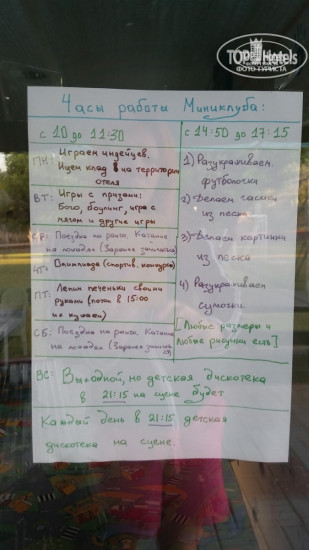 TOP Hotels
ФОТО ТУРИСТА
Часы работы Миниклуба:
с 10 до 11:30
ПН: Играем индейцев.
Ищем клад на территории
отеля
ВТ: Игры с призами:
Бого, боулинг, игра с
мячом и другие игры
СР: Поездка на ранчо. Катание
на лошадях (Заранее записаться)
ЧТ: Олимпиада (спортив. конкурсы)
ПТ: Лепим печеньки своими
руками (потом в 15:00
их кушаем)
СБ: Поездка на ранчо. Катание
на лошадях (Заранее
с 14:50 до 17:15
1) Разукрашиваем
футболочки
2) Делаем
из песка
3) Делаем картинки
из песка
4) Разукрашиваем
сумочки.
[Любые размеры и
любые рисунки есть]
ВС: Выходной, но детская дискотека
в 21:15 на сцене будет
Каждый день в 21:15 детская
дискотека на сцене.